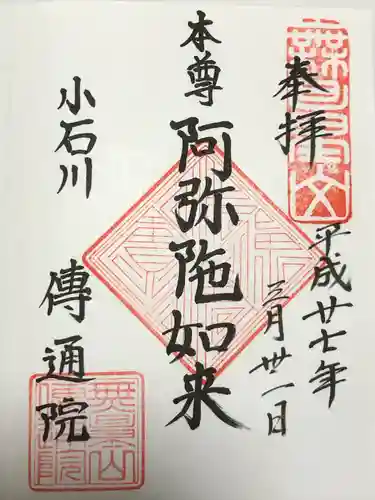 奉拝
平成廿七年
三月卅一日
本尊
阿弥陀如来
小石川
傳通院